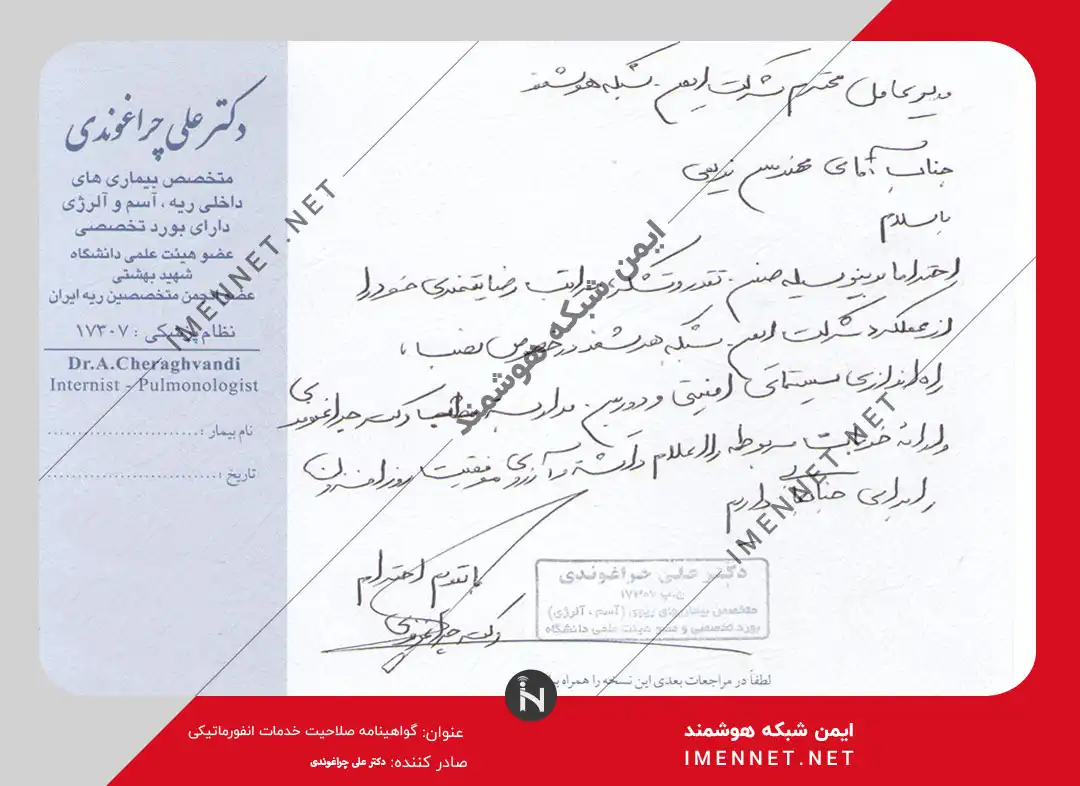 دکتر علی چراغوندی
متخصص بیماری های
داخلی ریه ، آسم و آلرژی
دارای بورد تخصصی
عضو هیئت علمی دانشگاه
شهید بهشتی
عضو انجمن متخصصین ریه ایران
نظام پزشکی : ۱۷۳۰۷
Dr.A.Cheraghvandi
Internist - Pulmonologist
نام بیمار :
تاریخ :
مدیر عامل محترم شرکت ایمن شبکه هوشمند
جناب آقای مهندس
با سلام
احتراما بدینوسیله ضمن تقدیر و تشکر مراتب رضایتمندی خود را
از عملکرد شرکت ایمن شبکه هوشمند در خصوص نصب
راه اندازی سیستمهای امنیتی و دوربین مداربسته مطب دکتر چراغوندی
و ارائه خدمات مربوطه را اعلام داشته و آرزوی موفقیت روز افزون
را برای جنابعالی دارم
با تقدیم احترام
دکتر چراغوندی
دکتر علی چراغوندی
ن.پ ۱۷۳۰۷
متخصص بیماریهای ریوی (آسم ، آلرژی)
بورد تخصصی و عضو هیئت علمی دانشگاه
لطفاً در مراجعات بعدی این نسخه را همراه
IMENNET.NET
ایمن شبکه هوشمند
IMENNET.NET
ایمن شبکه هوشمند
IMENNET.NET
عنوان: گواهینامه صلاحیت خدمات انفورماتیکی
صادر کننده: دکتر علی چراغوندی